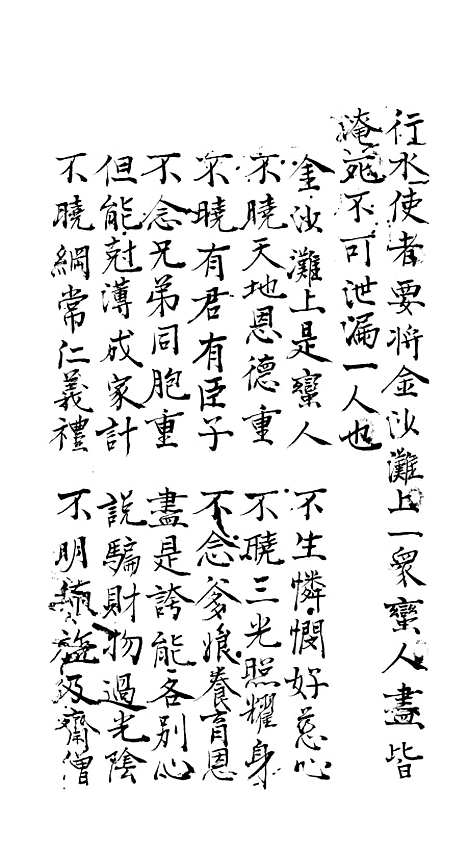 行水使者要将金沙灘上一衆蠻人盡皆
淹死不可泄漏一人也
金沙灘上是蠻人 不生憐憫好慈心
不曉天地恩德重 不曉三光照耀身
不曉有君有臣子 不念爹娘養育恩
不念兄弟同胞重 盡是誇能各别心
但能尅薄成家計 説騙財物過光陰
不曉綱常仁義禮 不明 施及齋僧